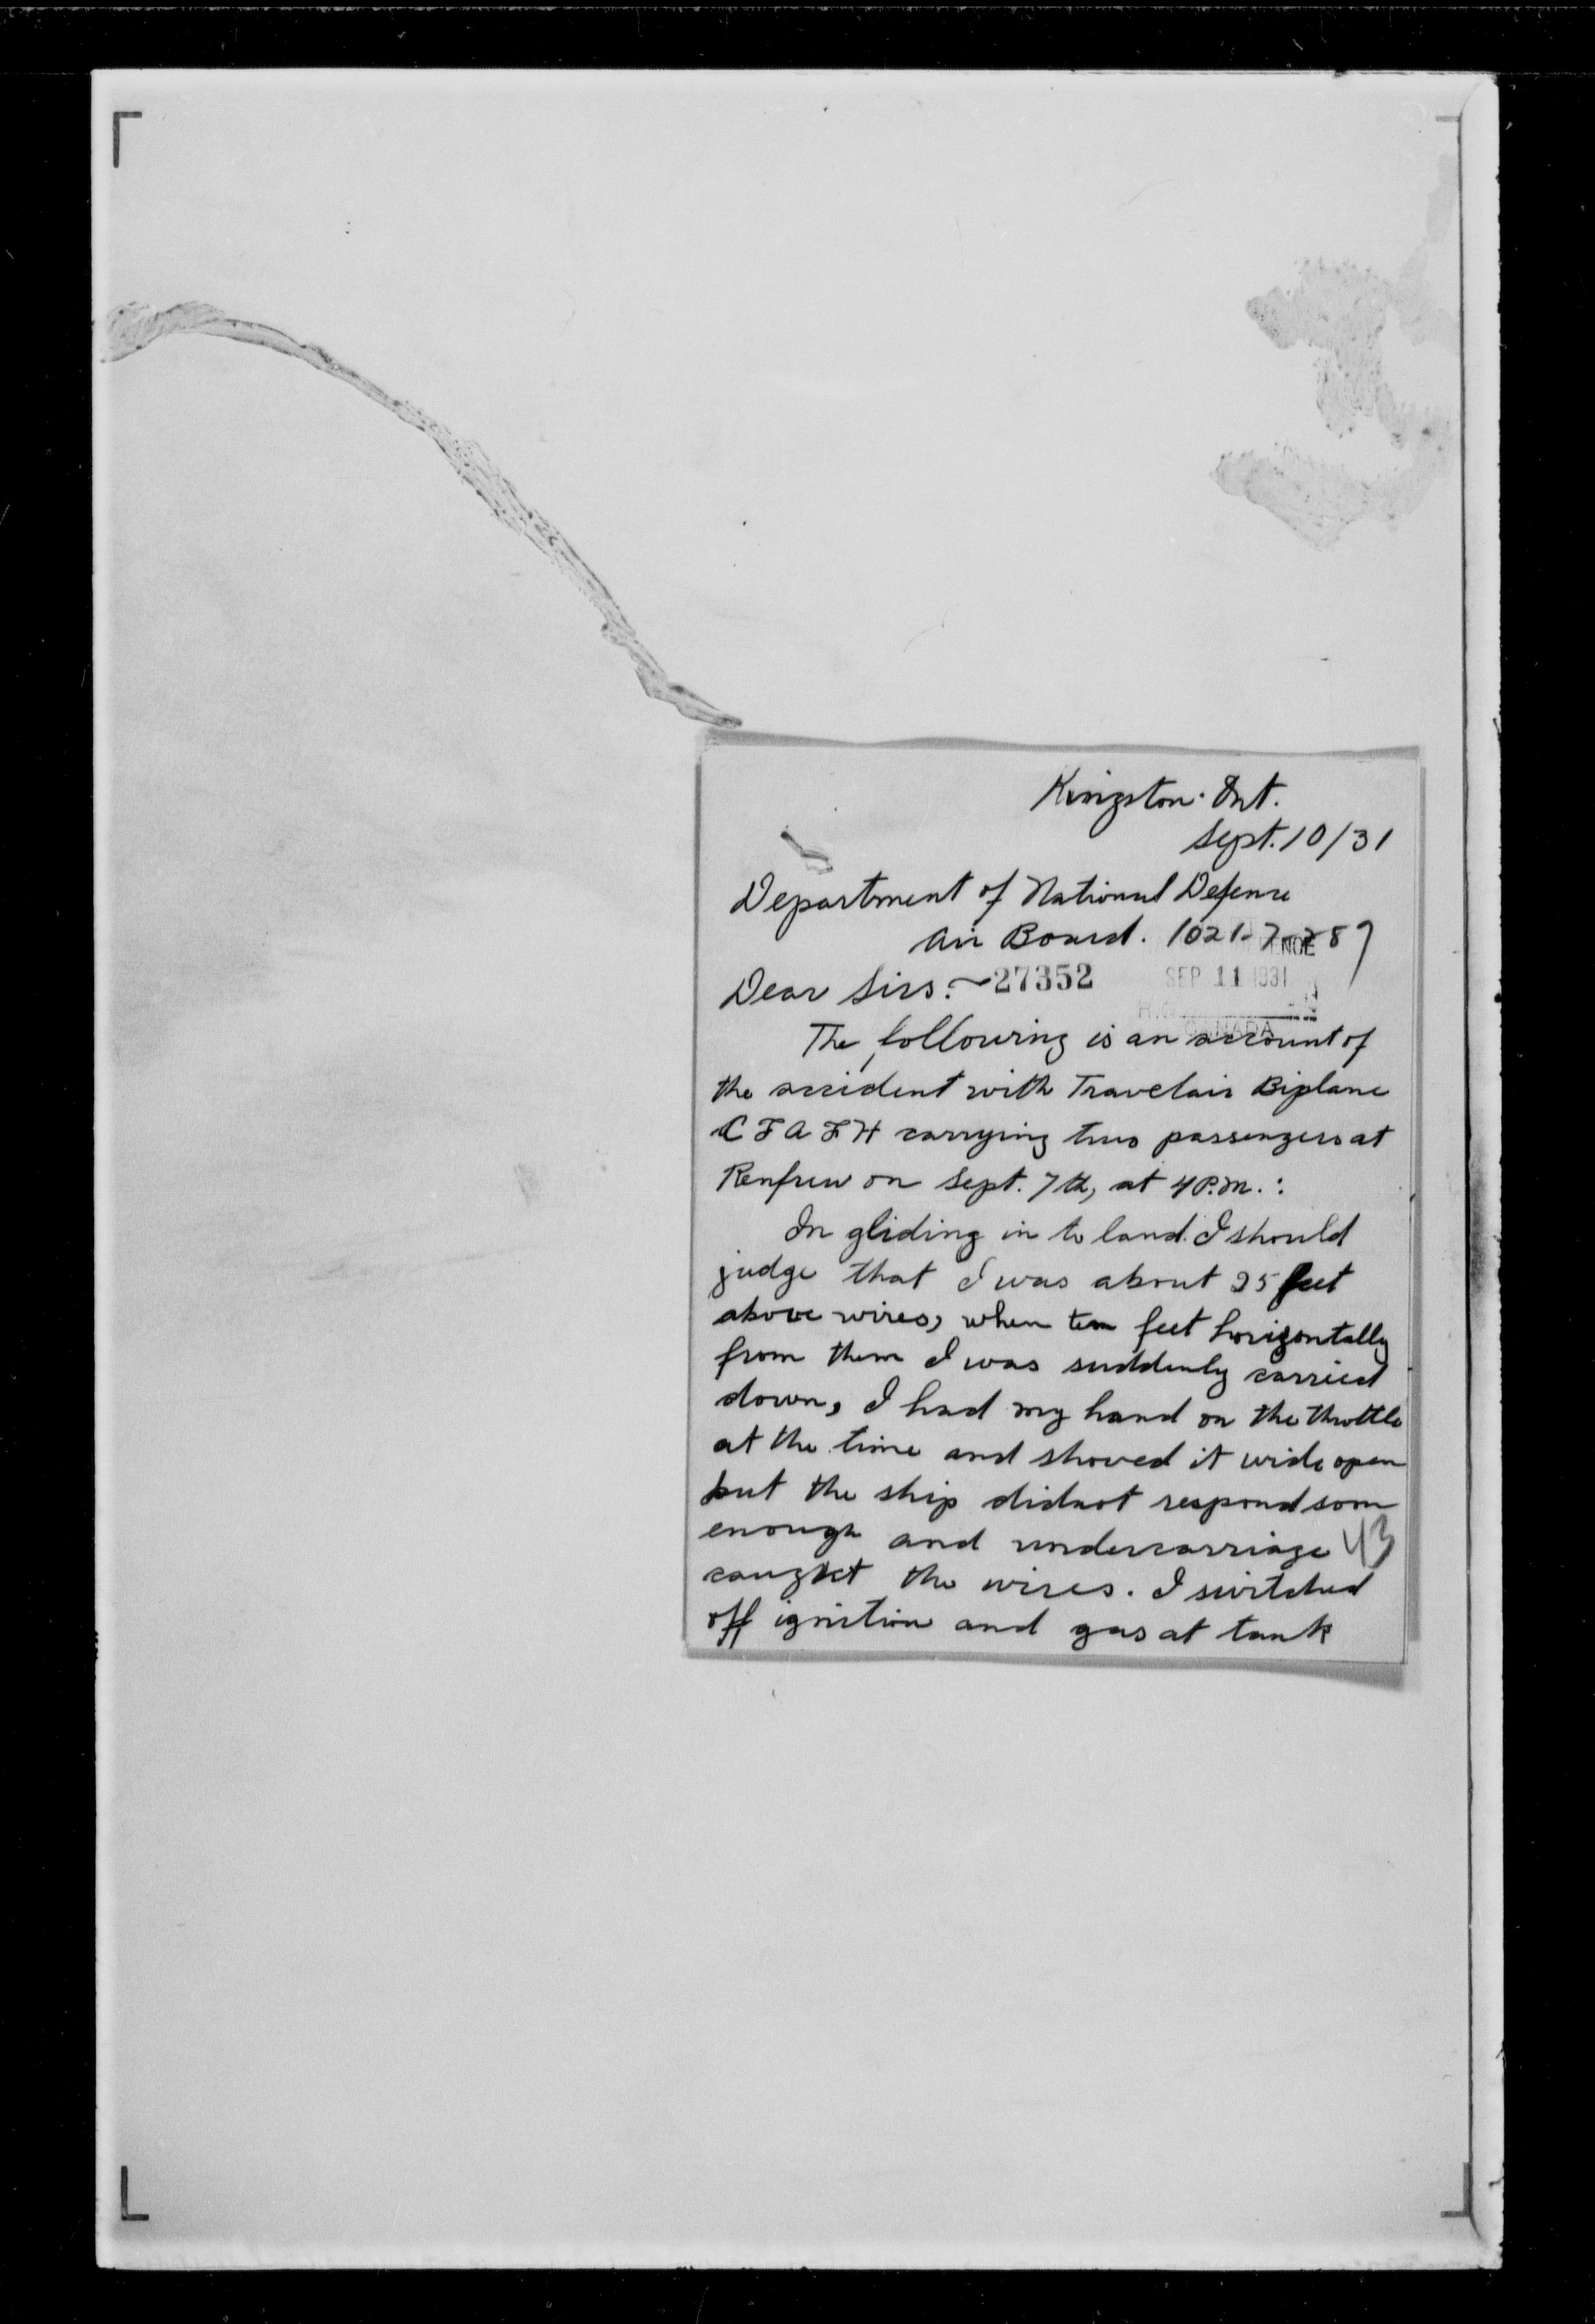 Kingston. Ont.
Sept. 10/31
Department of National Defense
Air Board. 1021-7-287
Dear Sirs:- 27352 SEP 11 1931
CANADA
The following is an account of
the accident with Travelair Biplane
CFAFH carrying two passengers at
Renfrew on Sept. 7th, at 4 P.M.:
In gliding in to land. I should
judge that I was about 25 feet
above wires, when ten feet horizontally
from them I was suddenly carried
down, I had my hand on the throttle
at the time and shoved it wide open
but the ship didnot respond soon
enough and undercarriage 43
caught the wires. I switched
off ignition and gas at tank